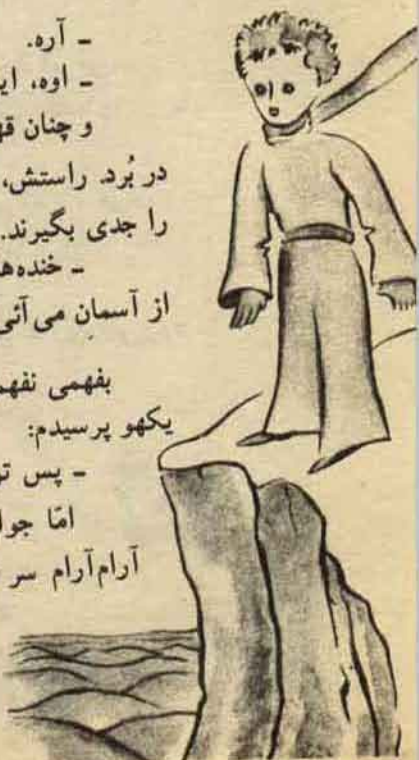 - آره.
- اوه، این
و چنان قه
در بُرد. راستش،
را جدی بگیرند.
- خنده‌ها
از آسمان می‌آئی
بفهمی نفهم
یکهو پرسیدم:
- پس تو
امّا جوا
آرام‌آرام سر